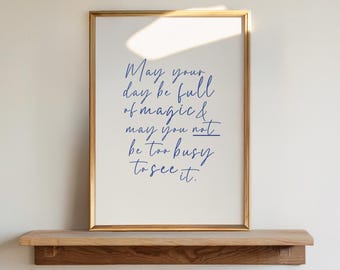 May your
day be full
of magic &
may you not
be too busy
to see it.